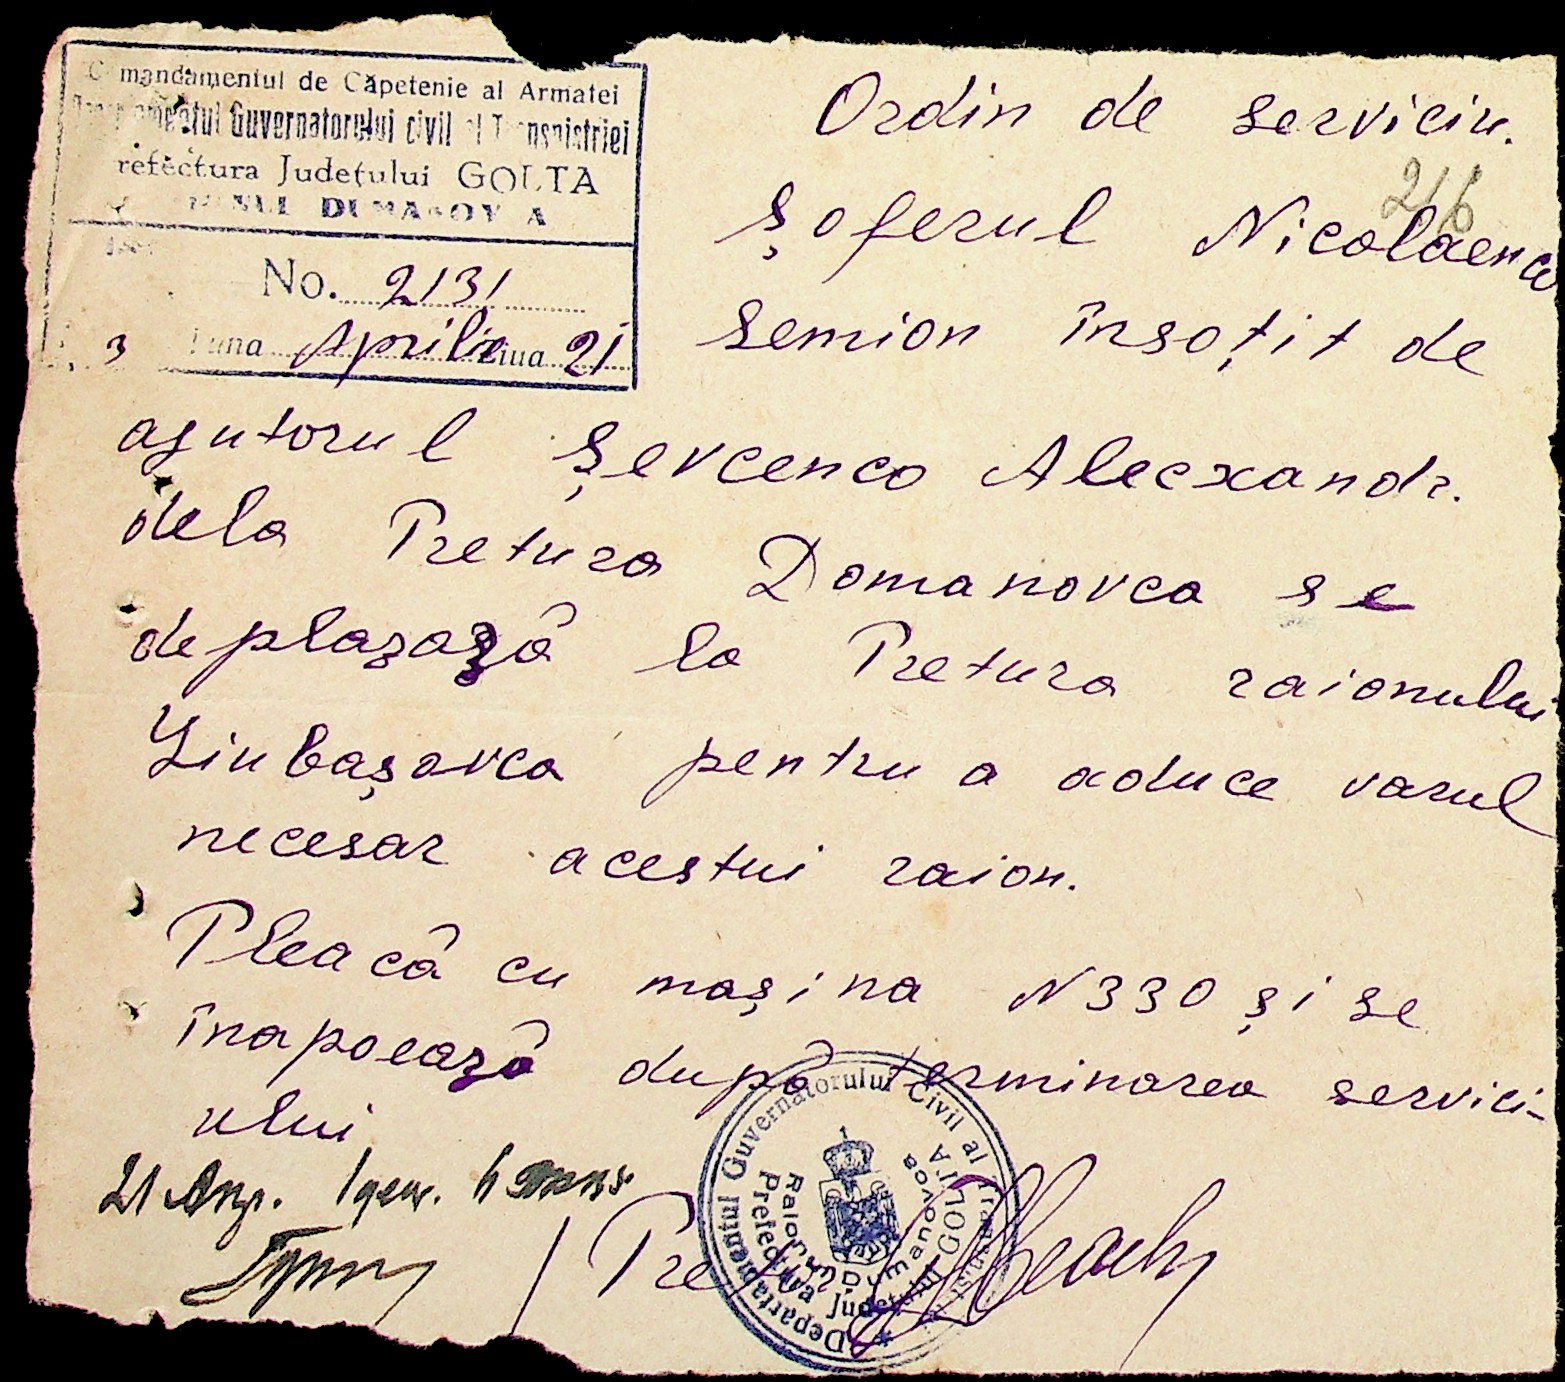 Comandamentul de Căpetenie al Armatei
Guvernatorului civil al Transnistriei
refectura Județului GOLTA
No. 2131
3 Luna Aprilie Ziua 21
Ordin de serviciu.
216
Șoferul Nicolaenco
Semion însoțit de
ajutorul Șevcenco Alecxandr.
dela Pretura Domanovca se
deplazază la Pretura raionului
Liubașovca pentru a aduce varul
necesar acestui raion.
Pleacâ cu mașina N 330 și se
înapoeazâ dupâ terminarea servici-
ului
21 Апр.
Pretor
Departamentul Guvernatorului Civil al Transnistriei
Prefectura Județului GOLTA